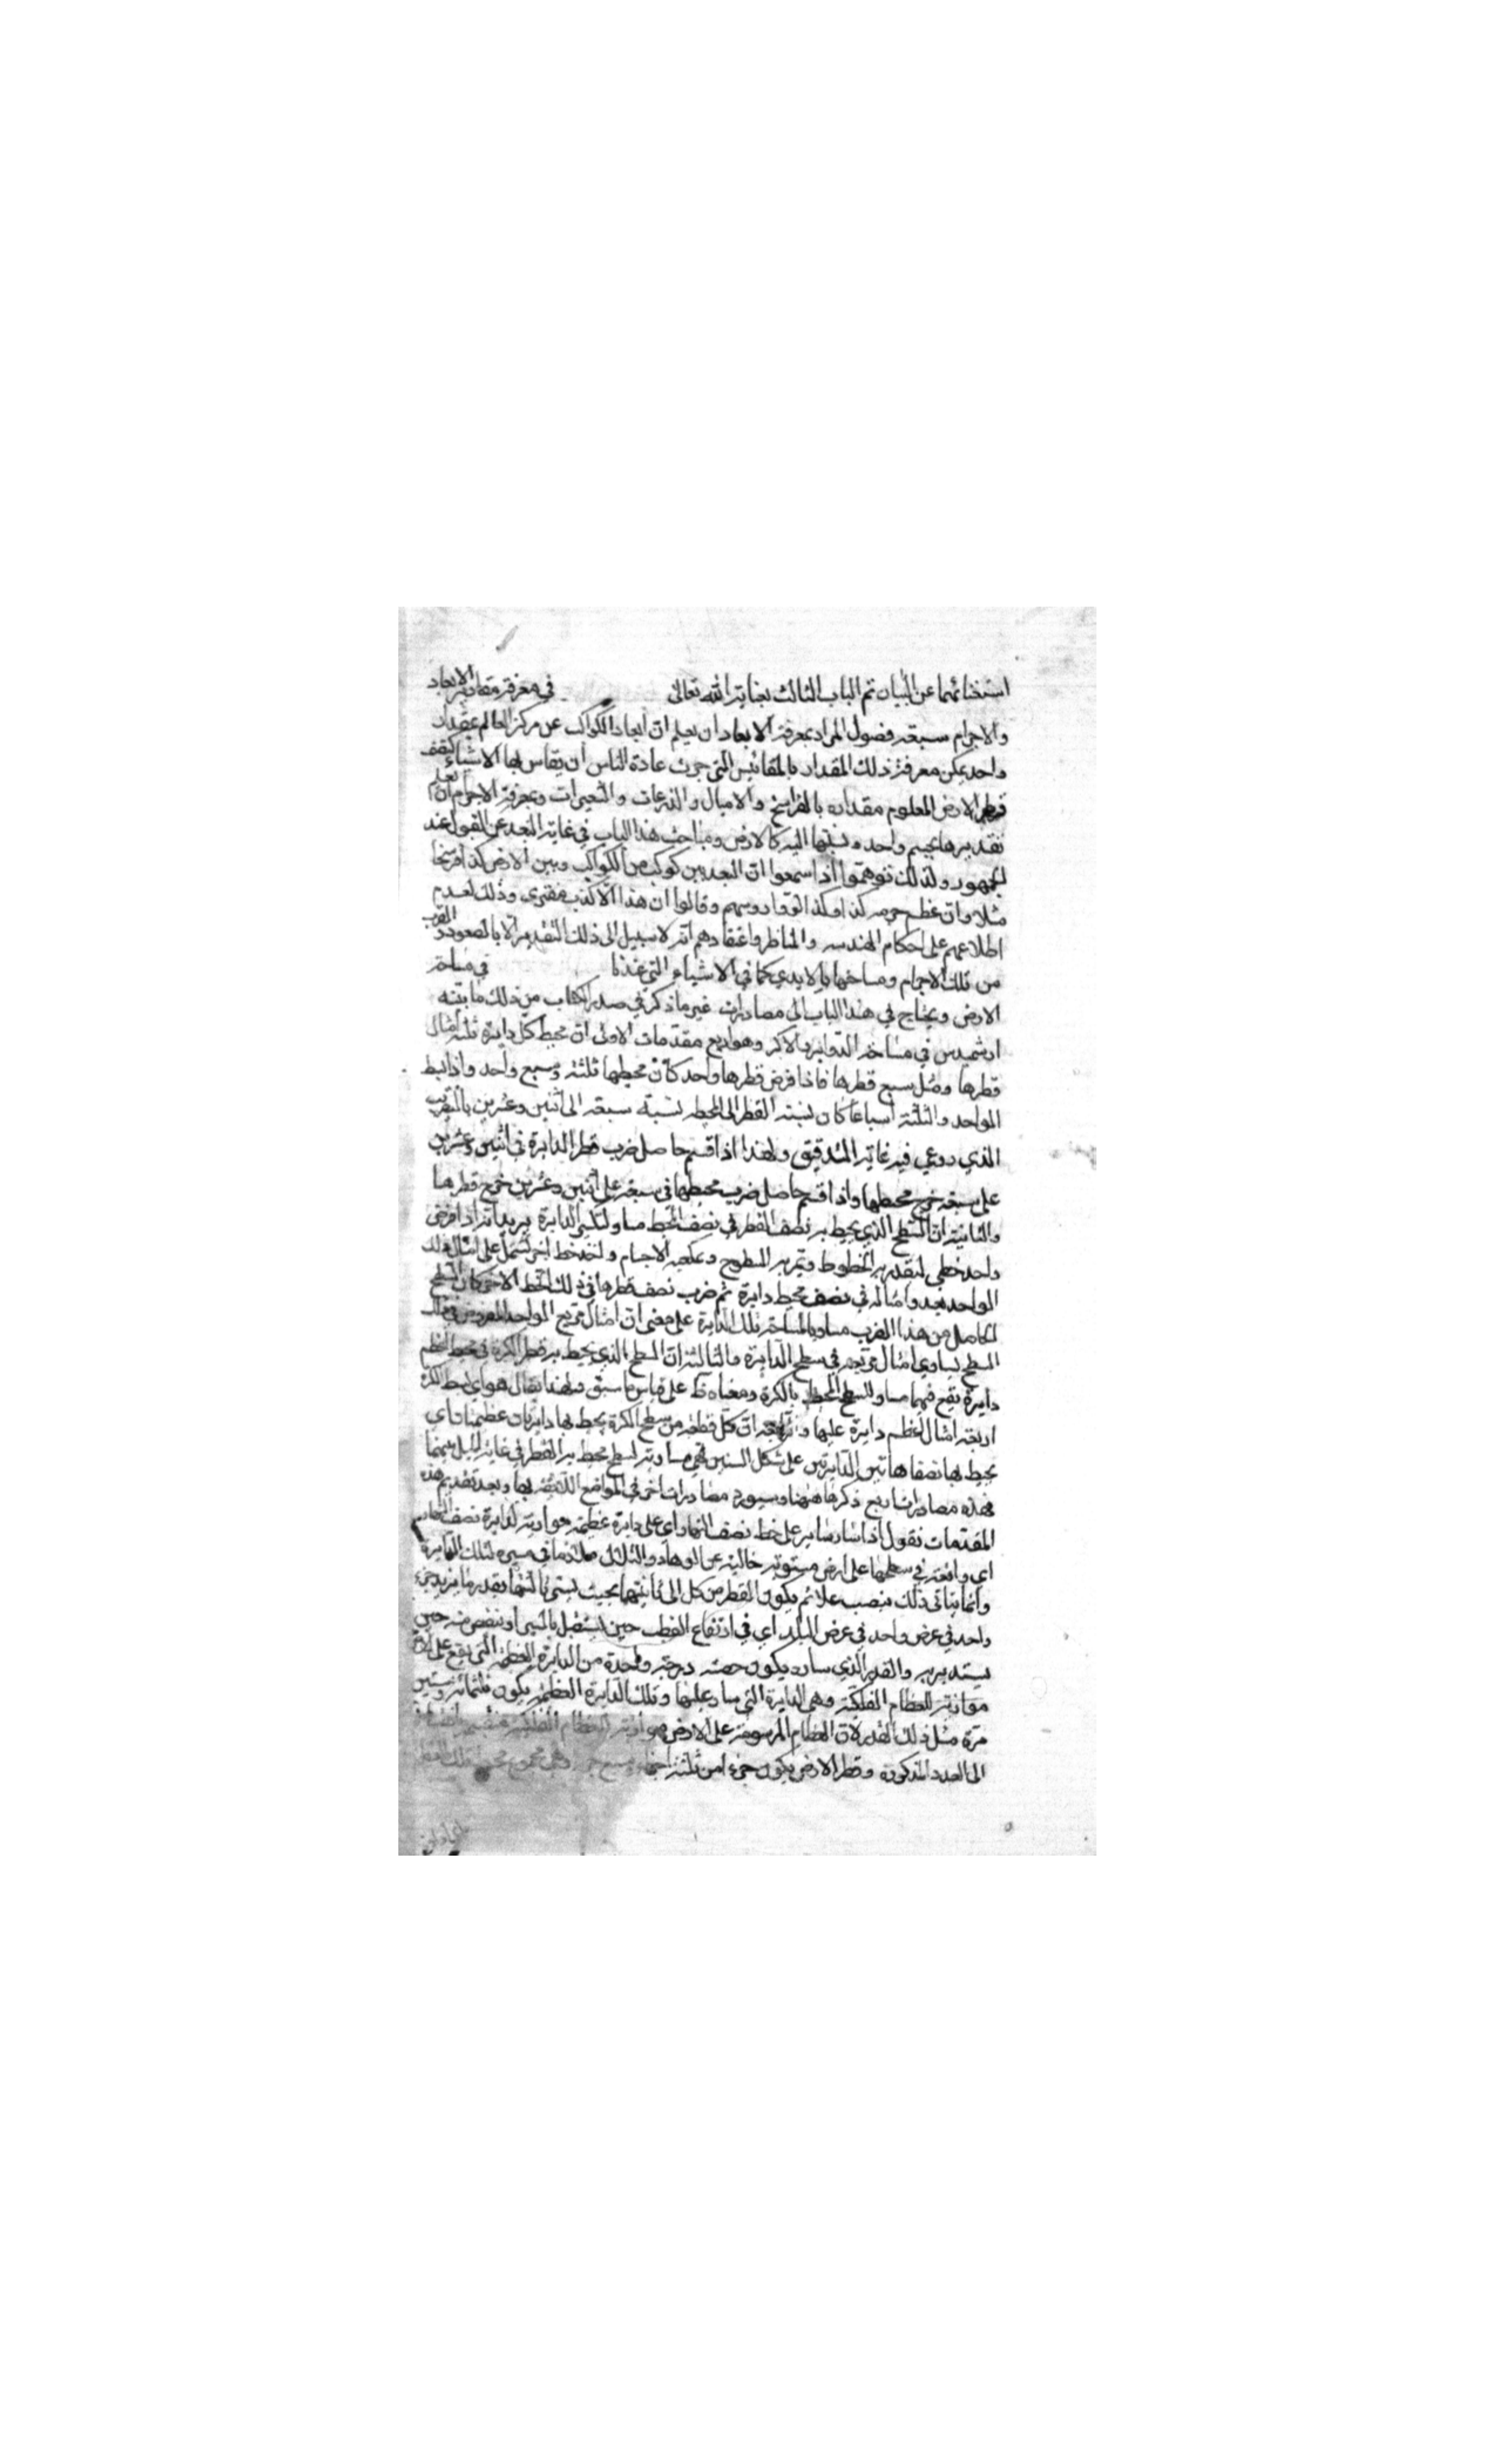 استغنائهما عن البيان تم الباب الثالث بعناية الله تعالى في معرفة مقادير الابعاد
والاجرام سبعة فصول المراد بمعرفة الابعاد ان يعلم ان ابعاد الكواكب عن مركز العالم بمقدار
واحد يمكن معرفة ذلك المقدار بالمقائيس التي جرت عادة الناس ان يقاس بها الاشياء كنصف
قطر الارض المعلوم مقداره بالفراسخ والاميال والذرعات والشعيرات وبمعرفة الاجرام ان
تقديرها بجسم واحد ونسبتها اليه كالارض ومباحث هذا الباب في غاية البعد عن القبول عند
الجمهور ولذلك توهموا اذا سمعوا ان البعد بين كوكب من الكواكب وبين الارض كذا فرسخا
مثلا وان عظم جرمه كذا وكذا لووا رؤسهم وقالوا ان هذا الا كذب مفترى وذلك لعدم
اطلاعهم على احكام الهندسة والمناظر واعتقادهم انه لا سبيل الى ذلك التقدير الا بالصعود والقرب
من تلك الاجرام ومساحتها بالايدي كما في الاشياء التي عندنا في مساحة
الارض ويحتاج في هذا الباب الى مصادرات غير ما ذكر في صدر الكتاب من ذلك ما بينه
ارشميدس في مساحة الدواير والاكر وهو اربع مقدمات الاولى ان محيط كل دايرة ثلثة امثال
قطرها ومثل سبع قطرها فاذا فرض قطرها واحد كان محيطها ثلثة وسبع واحد واذا بسط
الواحد والثلثة اسباعا كان نسبة القطر الى المحيط نسبة سبعة الى اثنين وعشرين بالتقريب
الذي روعي فيه غاية التدقيق ولهذا اذا قسم حاصل ضرب قطر الدايرة في اثنين وعشرين
على سبعة خرج محيطها واذا قسم حاصل ضرب محيطها في سبعة على اثنين وعشرين خرج قطرها
والثانية ان السطح الذي يحيط به نصف القطر في نصف المحيط مساو لتكسير الدايرة يريد انه اذا فرض
واحد خطي لتقدير الخطوط وتربيعه السطوح ومكعبه الاجسام ولنجد خط اخر تشمل على امثال ذلك
الواحد بعدد امثاله في نصف محيط دايرة ثم ضرب نصف قطرها في ذلك الخط الاخر كان السطح
الحاصل من هذا الضرب مساويا لمساحة تلك الدايرة على معنى ان امثال مربع الواحد المفروض في ذلك
السطح يساوي امثال مربعه في سطح الدايرة والثالثة ان السطح الذي يحيط به قطر الكرة في محيط اعظم
دايرة تقع فيها مساو للسطح المحيط بالكرة ومعناه ظ على قياس ما سبق ولهذا يقال هو اي بسيط الكرة
اربعة امثال اعظم دايرة عليها والرابعة ان كل قطعة من سطح الكرة يحيط بها دايرتان عظيمتان اي
يحيط بها نصفا هاتين الدايرتين على شكل السنين فهي مساوية لسطح يحيط به القطر في غاية الميل بينهما
فهذه مصادرات اربع ذكرها ههنا وسيورد مصادرات اخرى في المواضع اللايقة بها وبعد تقديم هذه
المقدمات نقول اذا سار ساير على خط نصف النهار اي على دايرة عظيمة موازية لدايرة نصف النهار
اي واقعة في سطحها على ارض مستوية خالية عن الوهاد والتلال ملازما في مسيره لتلك الدايرة
وانما يتاتى ذلك بنصب علائم يكون النظر من كل الى ثانيتها بحيث يستر ثالثتها بقدر ما يزيد جزء
واحد في عرض واحد في عرض البلد اي في ارتفاع القطب حين يستقبل بالسير او ينقص منه حين
يستدبر به والقدر الذي سار ويكون حصة درجة واحدة من الدايرة العظيمة التي تقع على الارض
موازية للعظام الفلكية وهي الدايرة التي سار عليها وتلك الدايرة العظيمة يكون ثلثمائة وستين
مرة مثل ذلك القدر لان العظام المرسومة على الارض موازية للعظام الفلكية منقسمة
الى العدد المذكورة وقطر الارض يكون جزءا من ثلثة اجزاء وسبع جزء